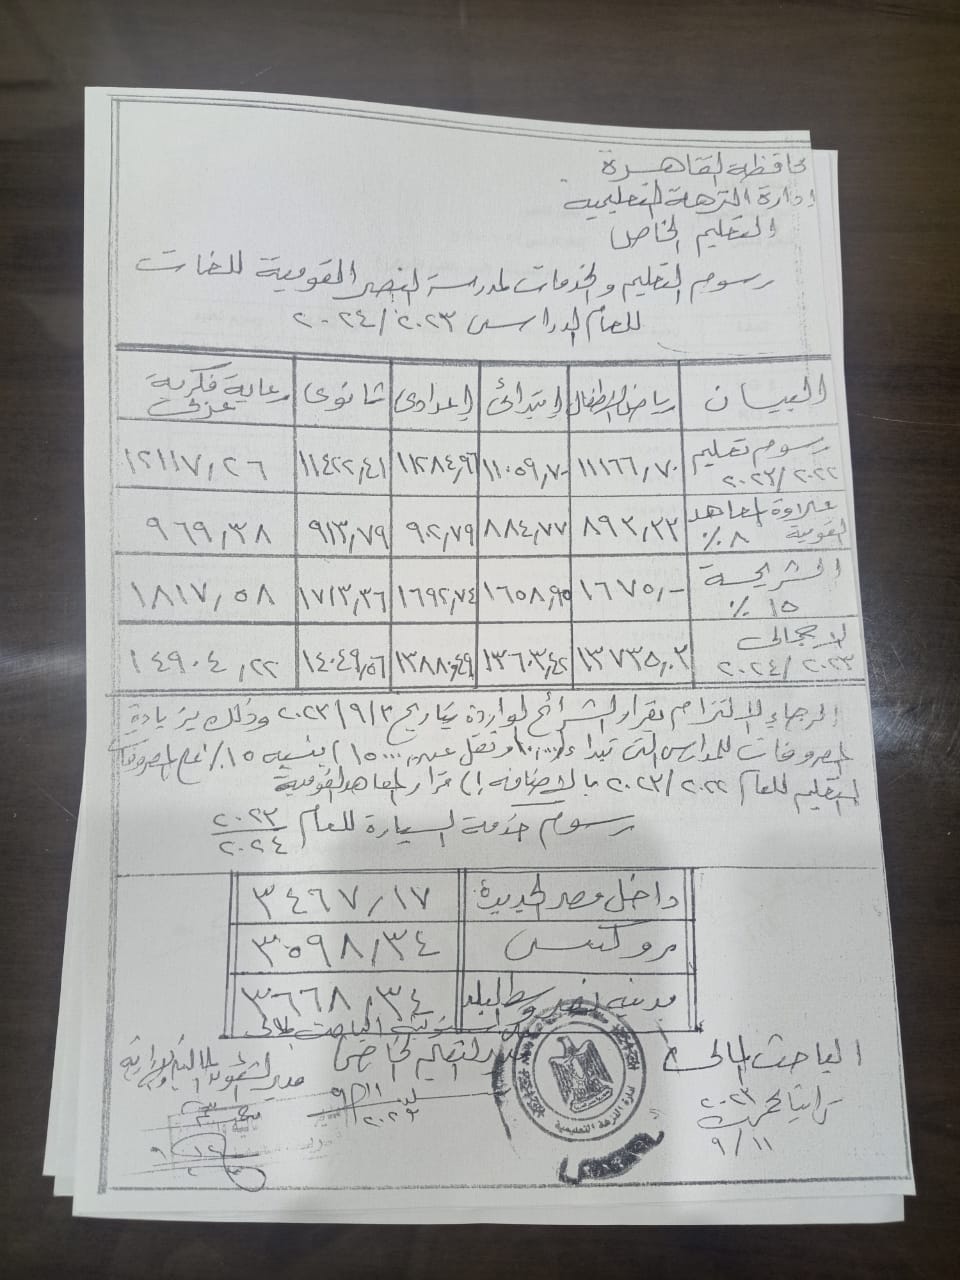 محافظة القاهرة
إدارة النزهة التعليمية
التعليم الخاص
رسوم التعليم والخدمات لمدرسة النصر القومية للغات
للعام الدراسى ٢٠٢٣/٢٠٢٤
البيان رياض الأطفال إبتدائى إعدادى ثانوى رعاية فكرية عربى
رسوم تعليم ٢٠٢٢/٢٠٢٣ ١١١٦٦,٧٠ ١١٠٥٩,٧٠ ١١٢٨٤,٩٦ ١١٤٢٢,٤١ ١٢١١٧,٢٦
علاوة المعاهد القومية ٨٪ ٨٩٣,٣٣ ٨٨٤,٧٧ ٩٠٢,٧٩ ٩١٣,٧٩ ٩٦٩,٣٨
الشريحة ١٥٪ ١٦٧٥,- ١٦٥٨,٩٥ ١٦٩٢,٧٤ ١٧١٣,٣٦ ١٨١٧,٥٨
الإجمالى ٢٠٢٣/٢٠٢٤ ١٣٧٣٥,٠٣ ١٣٦٠٣,٤٢ ١٣٨٨٠,٤٩ ١٤٠٤٩,٥٦ ١٤٩٠٤,٢٢
الرجاء الإلتزام بقرار الشرائح الواردة بتاريخ ٢٠٢٣/٩/٣ وذلك بزيادة
المصروفات للمدارس التى تبداء وتقل عن بنسبه ١٥٪ على المصروفات
التعليم للعام ٢٠٢٢/٢٠٢٣ بالإضافه إلى قرار المعاهد القومية
رسوم خدمة السيارة للعام ٢٠٢٣/٢٠٢٤
داخل مصر الجديدة ٣٤٦٧,١٧
روكسى ٣٥٩٨,٣٤
مدينه نصر وسط البلد ٣٦٦٨,٣٤
الباحث المالى
مدير التعليم الخاص
٢٠٢٣
٩/١١
٩/١١
٢٠٢٣
إدارة النزهة التعليمية